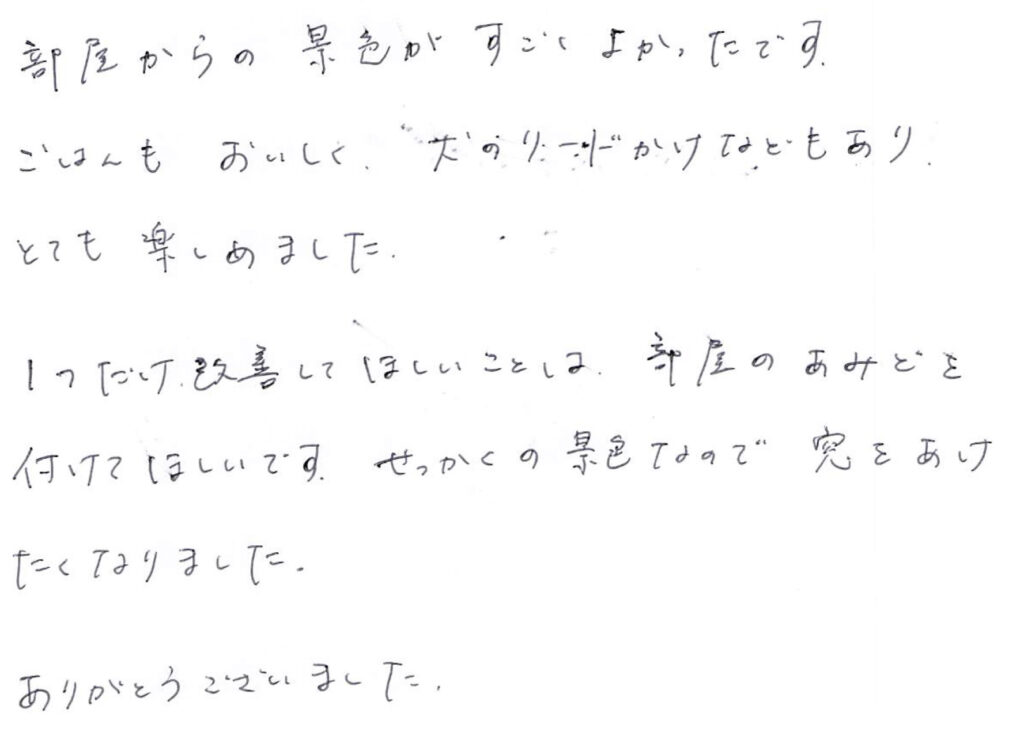 部屋からの景色がすごくよかったです.
ごはんもおいしく. 犬のリードかけなどもあり.
とても楽しめました.
1つだけ.改善してほしいことは. 部屋のあみどを
付けてほしいです. せっかくの景色なので窓をあけ
たくなりました.
ありがとうございました.